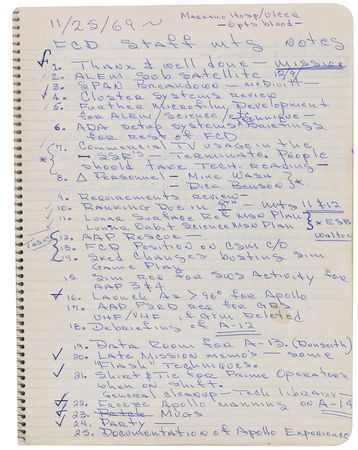 11/25/69 ~
- 6 pts blood -
FCD Staff mtg Notes
1. Thanx & well done - Mission
2. ALEM Sub satellite 12/9/
3. SPAN Breakdown -
4. Cluster Systems review
5. Further Microfilm Development
for ALEM/science/etc
technique -
6. ADA setup systems Briefings
for rest of FCD
7. Commercial TV usage in the
- SSR's - Terminate. People
should take Tech. reading -
8. Δ Personnel - Mike Wash
- Dick Benson *
9. Requirements review -
10. Ranking Due in 5th - Mtg 11 & 12
11. Lunar Surface Ref Msn Plan
Lunar Orbit Science Msn Plan
* ESB
Walton
TASK
12. AAP Rescue
13. FCD Position on CSM C/O
14. Sked Changes busting sim
Game Play
15. Sim Req for SWS Activity for
AAP 3&4
16. Launch Az > 90° for Apollo
17. AAP PSRD Req for GRS
UHF/VHF if Gym Deleted
18. Debriefing of A-12
19. Data Room for A-13.
20. Late Mission Memo's - some
"Flash" Techniques.
21. Shirt & Tie for Prime Operators
when on shift.
General cleanup - Tech library?
22. Freeze Apollo Manning on A-14
23. Patch Mugs
24. Party -
25. Documentation of Apollo Experience